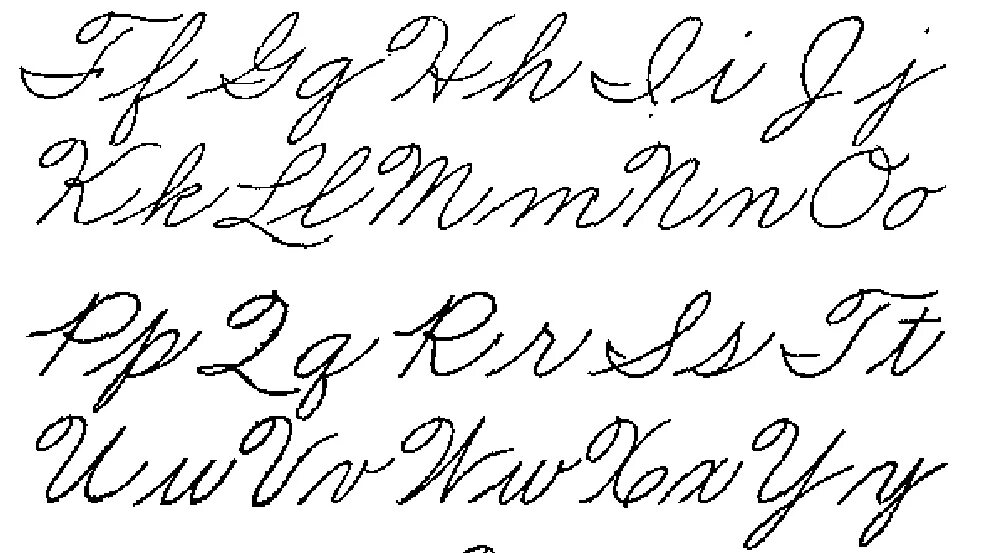 Ff Gg Hh Ii Jj
Kk Ll Mm Nn Oo
Pp Qq Rr Ss Tt
Uu Vv Ww Xx Yy